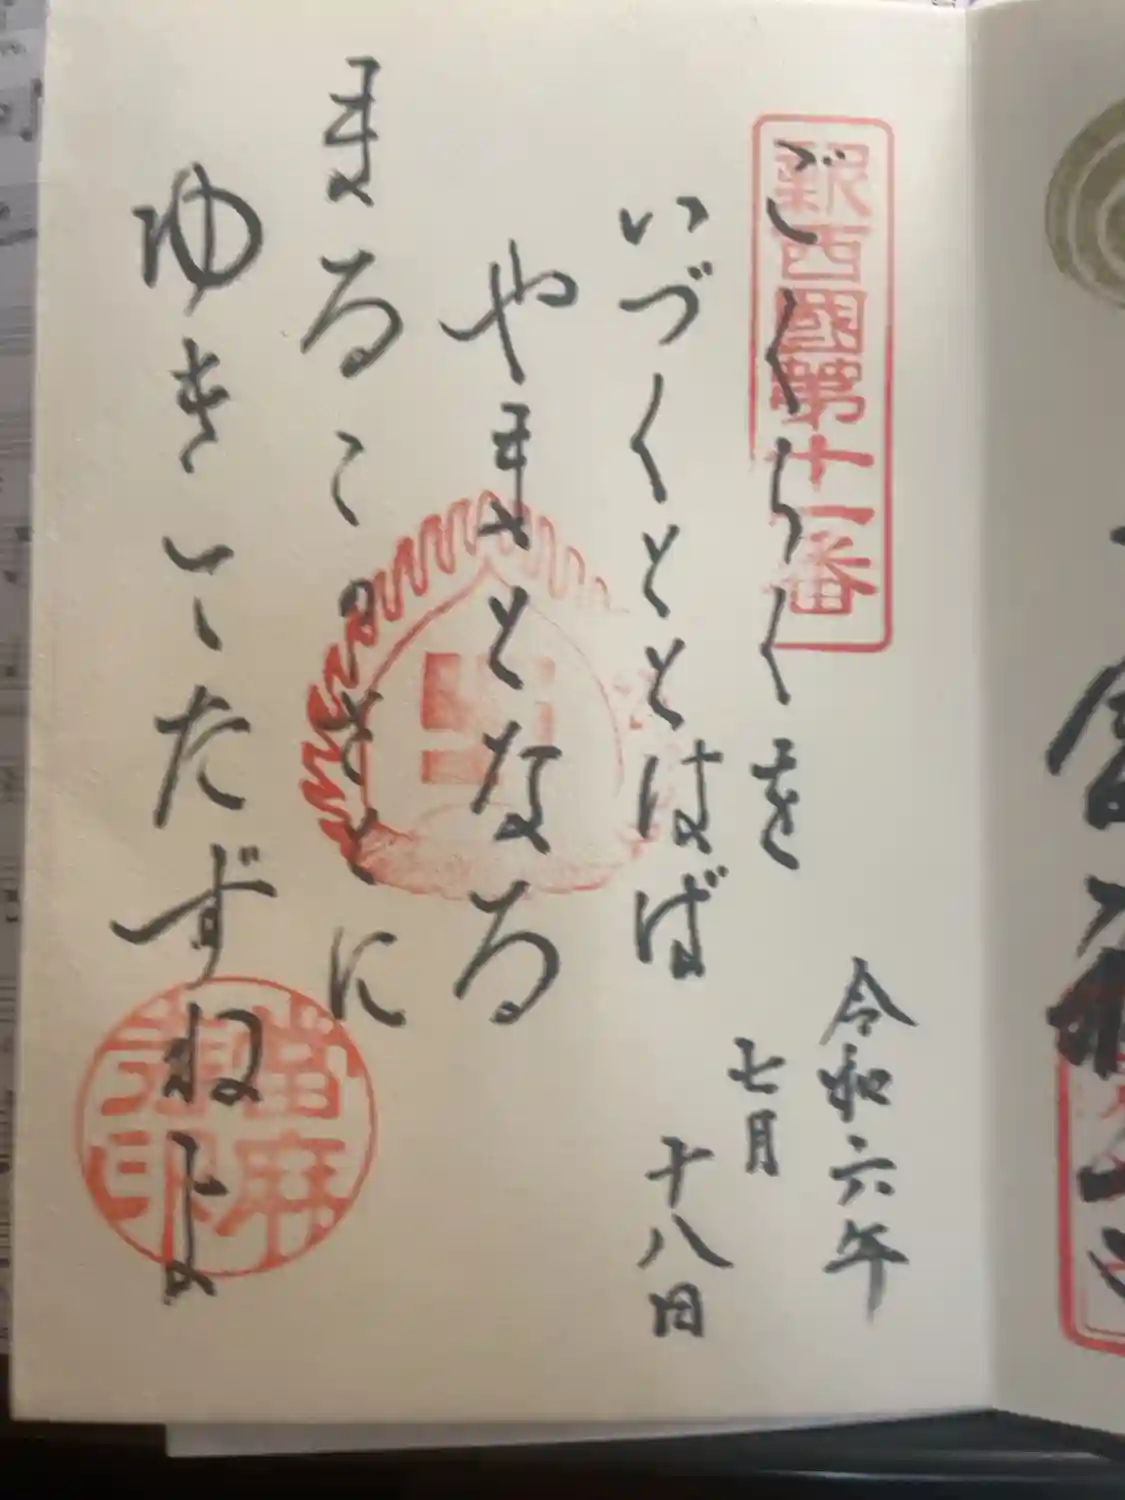 釈西國第十一番
ごくらくを
いづくととはば
やまとなる
まるこのさとに
ゆきいたずねよ
令和六年
七月
十八日
當麻
寺印